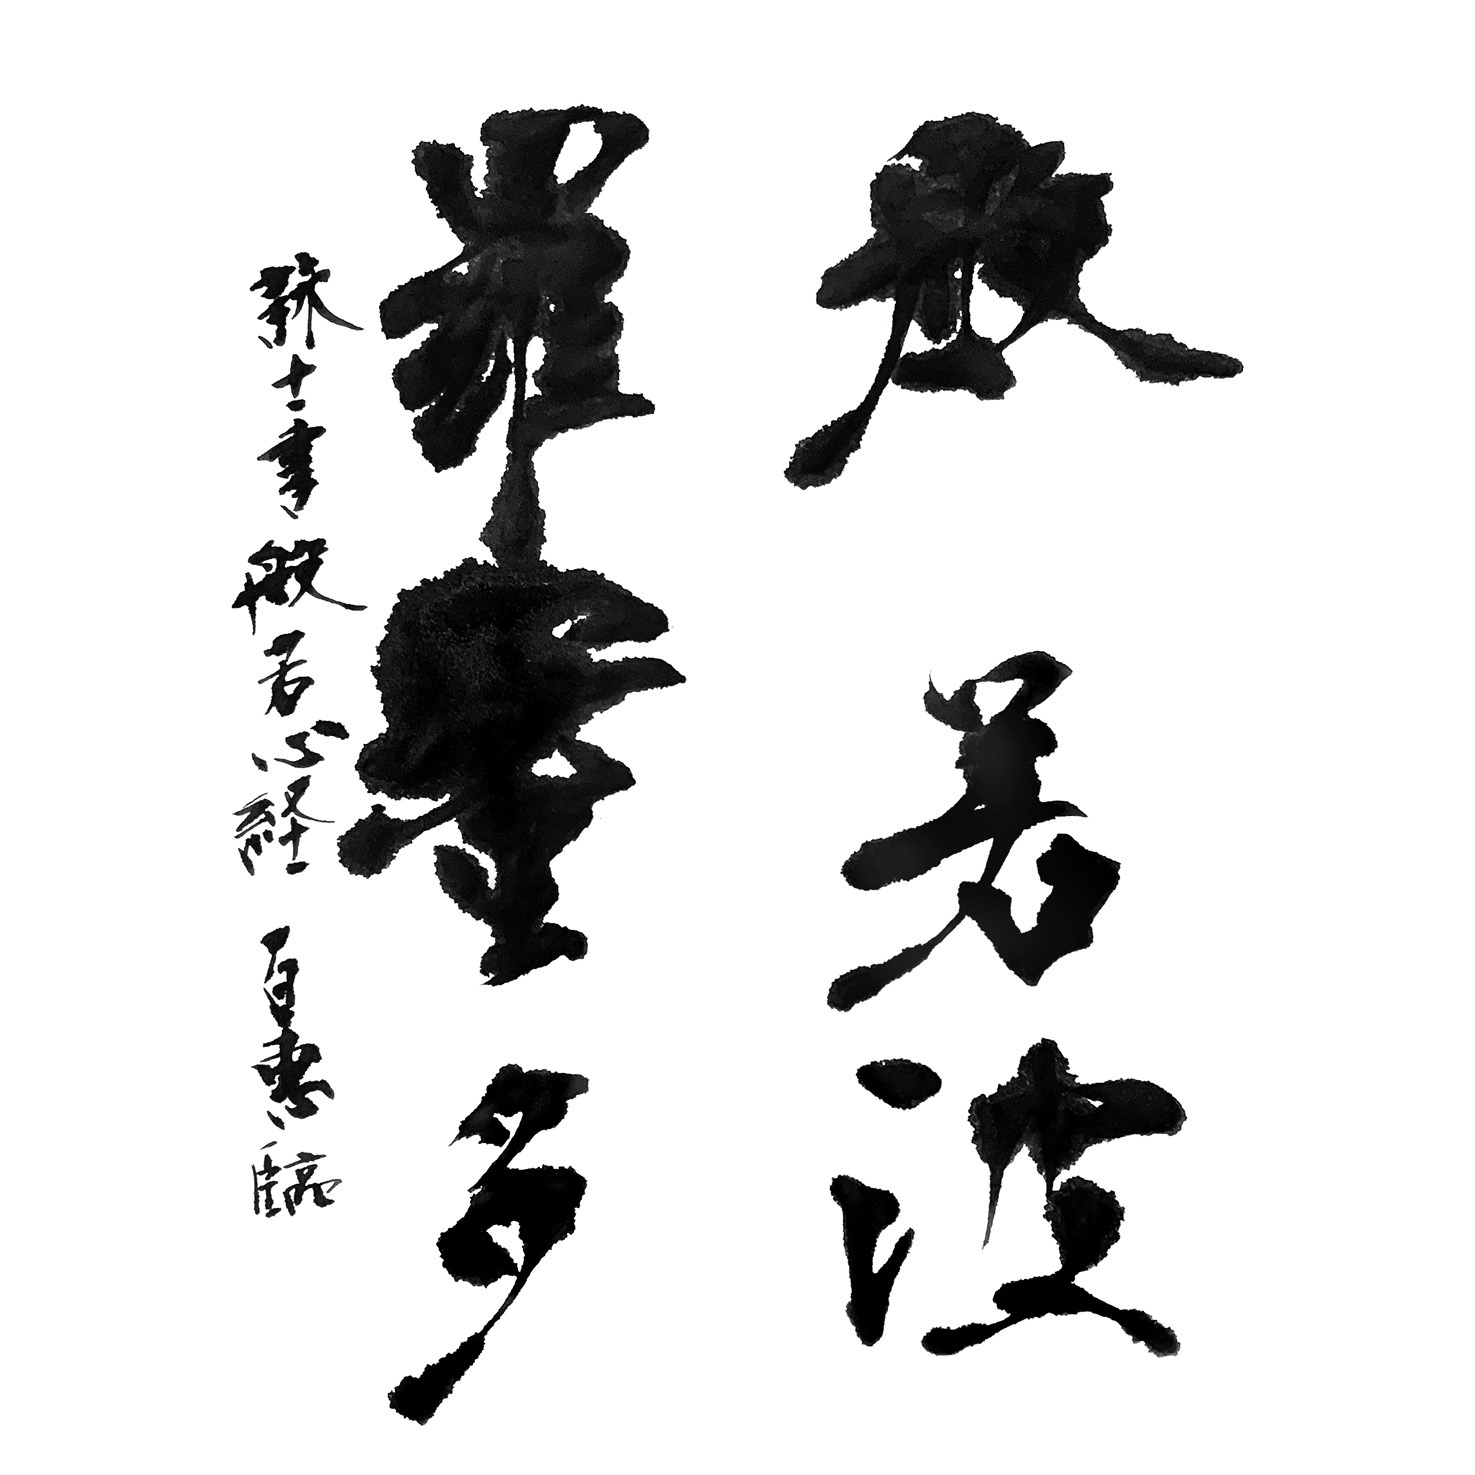 般若波
羅蜜多
蘇士書般若心経 百恵臨